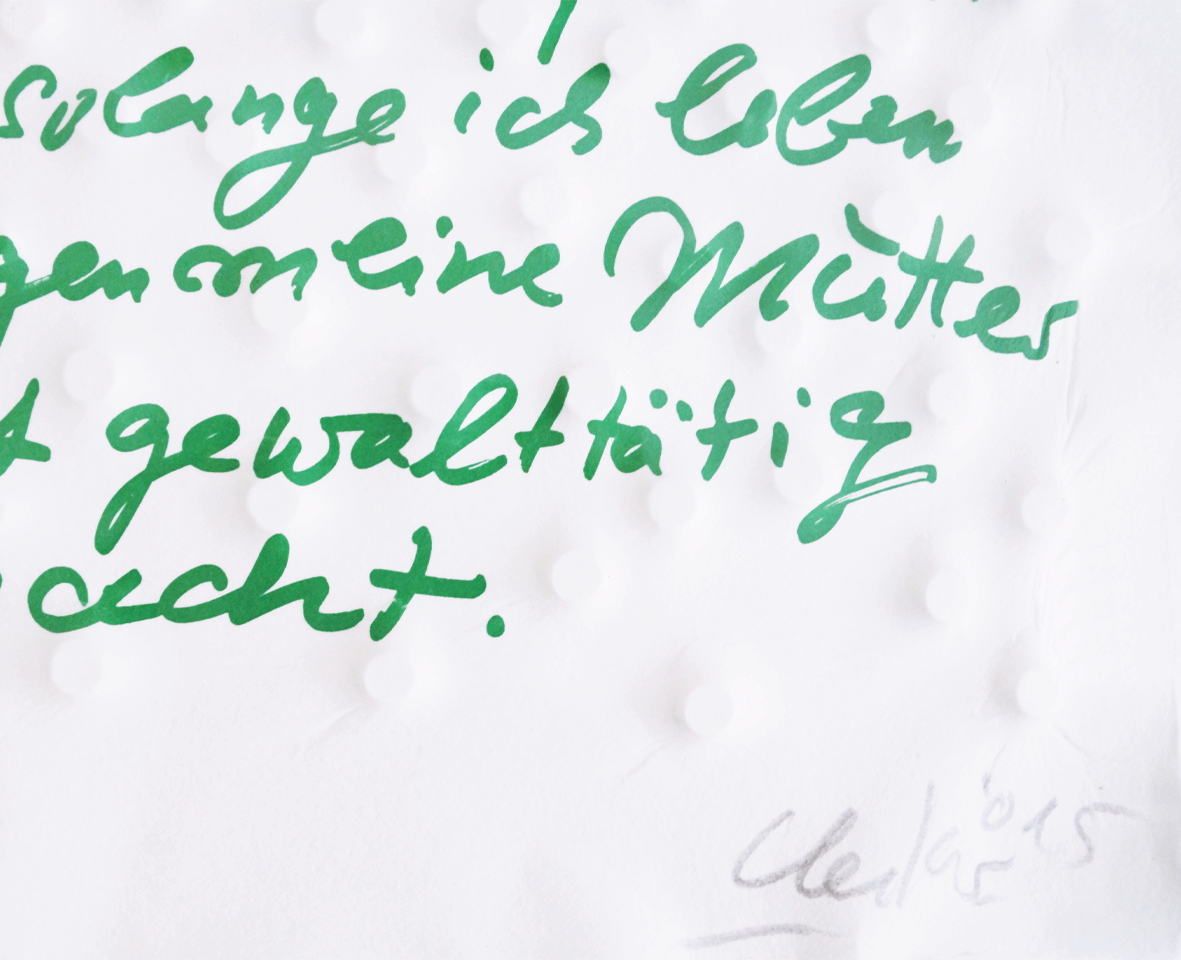 solange ich leben
gen meine Mutter
t gewalttätig
acht.
'015